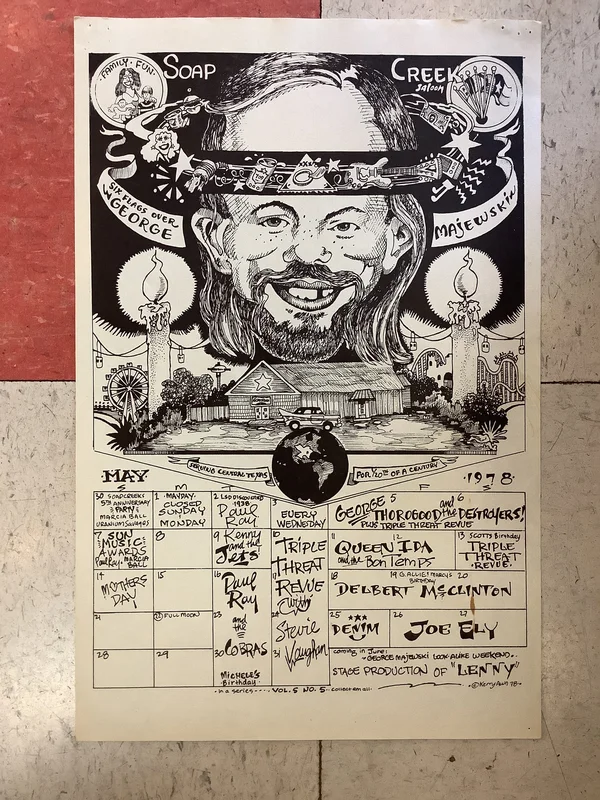 FAMILY · FUN
SOAP
CREEK
SALOON
SIX FLAGS OVER
GEORGE
MAJEWSKI
XXX
SERVING CENTRAL TEXAS
FOR 1/20TH OF A CENTURY
MAY
1978
S
M
T
F
S
30 SOAPCREEKS
5TH ANNIVERSARY
PARTY
MARCIA BALL
URANIUM SAVAGES
1 MAYDAY
CLOSED
SUNDAY
MONDAY
2 LSD DISCOVERED
1938
Paul
Ray
3
EVERY
WEDNESDAY
GEORGE 5 and 6
THOROGOOD and the DESTROYERS!
PLUS TRIPLE THREAT REVUE
7 SUN
MUSIC
AWARDS
Paul Ray · MARCIA
BALL
8
9 Kenny
and the
Jets
10
TRIPLE
THREAT
REVUE
with
Stevie
Vaughan
11 12
QUEEN IDA
and the Bon Temps
13 SCOTTS Birthday
TRIPLE
THREAT
REVUE
14
MOTHERS
DAY
15
16
Paul
Ray
and
the
COBRAS
18 19 G. ALLIE! MARCIS 20
BIRTHDAY
DELBERT McCLINTON
21
22 FULL MOON
23
24
25
DENIM
26 27
JOE ELY
28
29
30
MICHELE'S
Birthday
31
coming in June:
GEORGE MAJEWSKI LOOK ALIKE WEEKEND..
STAGE PRODUCTION OF "LENNY"
in a series ---- VOL. 5 NO. 5 - collect em all
© Kerry Awn 78